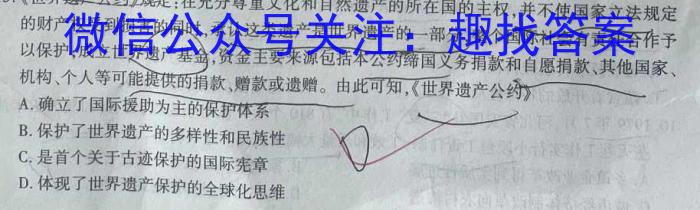 《世界遗产公约》规定:在充分尊重文化和自然遗产的所在国的主权,并不使国家立法规定
的财产
微信公众号关注:趣找答案
世界遗产的一部
合作予
以保护
世界遗产基金,资金主要来源包括本公约缔国义务捐款和自愿捐款、其他国家、
机构、个人等可能提供的捐款、赠款或遗赠。由此可知,《世界遗产公约》
A.确立了国际援助为主的保护体系
B.保护了世界遗产的多样性和民族性
C.是首个关于古迹保护的国际宪章
D.体现了世界遗产保护的全球化思维